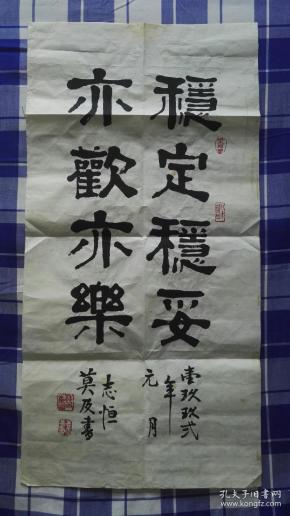 穩定穩妥
亦歡亦樂
壹玖玖弍
年
元月
志恒
莫及書
孔夫子旧书网